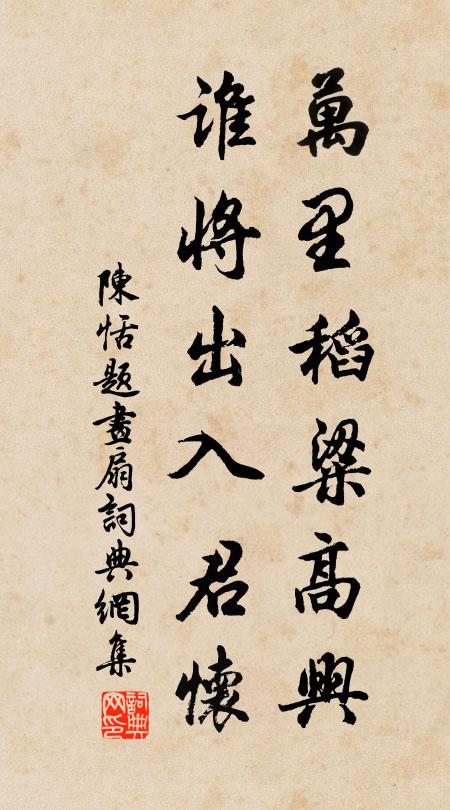 萬里稻粱高興
谁將出入君懷
陳恬題畫扇詞典網集
詞典网印